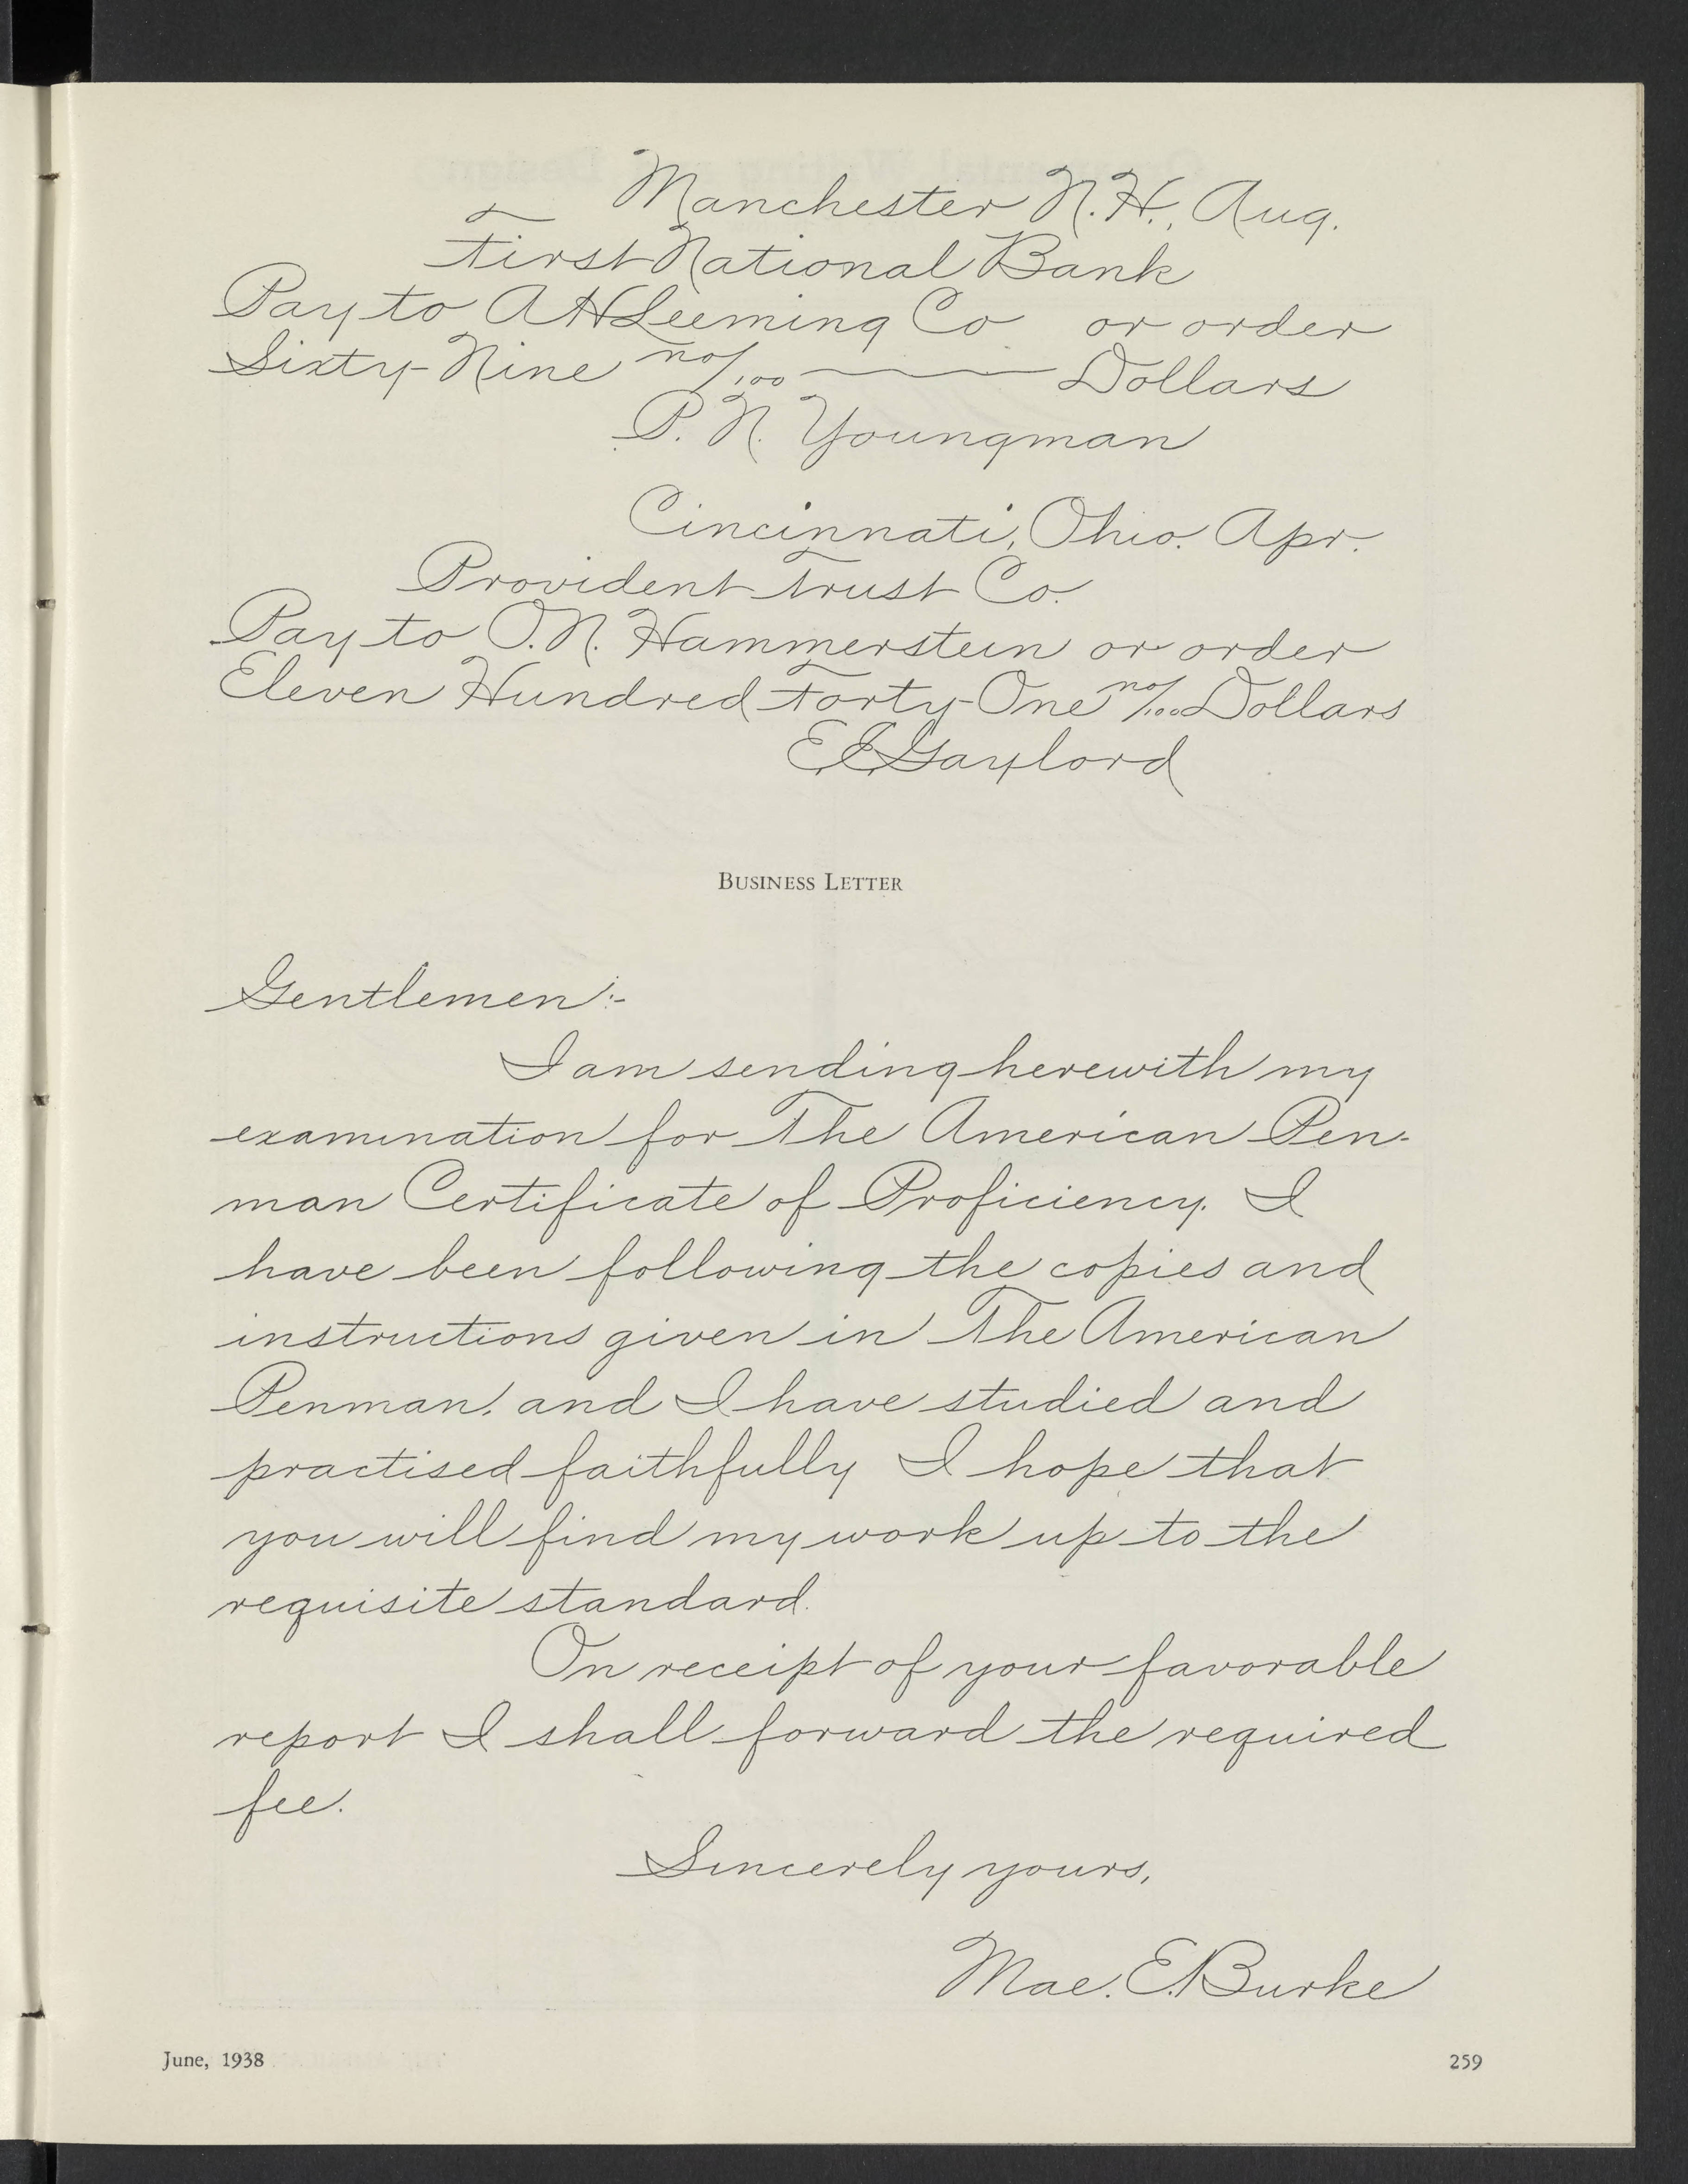 Manchester N.H., Aug.
First National Bank
Pay to A H Leeming Co or order
Sixty-Nine no/100 Dollars
P. N. Youngman
Cincinnati, Ohio. Apr.
Provident Trust Co.
Pay to O. N. Hammerstein or order
Eleven Hundred Forty-One no/100 Dollars
E E Gaylord
BUSINESS LETTER
Gentlemen:-
I am sending herewith my
examination for The American Pen-
man Certificate of Proficiency. I
have been following the copies and
instructions given in The American
Penman, and I have studied and
practised faithfully I hope that
you will find my work up to the
requisite standard.
On receipt of your favorable
report I shall forward the required
fee.
Sincerely yours,
Mae. E. Burke
June, 1938
259